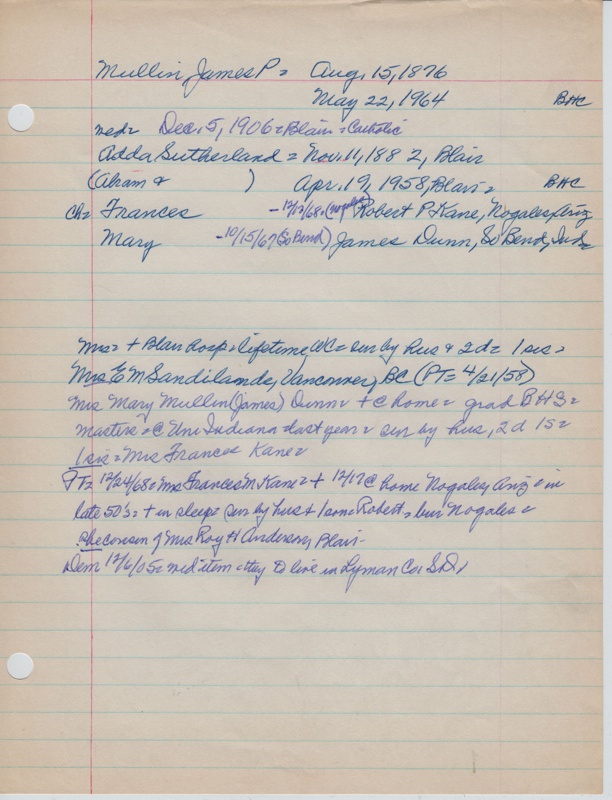 Mullin, James P = Aug. 15, 1876
May 22, 1964 BHC
med= Dec. 5, 1906 = Blair = Catholic
Adda Sutherland = Nov. 11, 1882, Blair
(Abram & ) Apr. 19, 1958, Blair = BHC
Ch= Frances -12/17/68=(Nogales) Robert P Kane, Nogales, Ariz
Mary -10/15/67(So Bend) James Dunn, So Bend, Ind=
Mrs= + Blair Hosp = lifetime WC = sur by hus & 2d = 1 sis =
Mrs E M Sandilands, Vancouver, BC (PT= 4/21/58)
Mrs Mary Mullin (James) Dunn = + @ home = grad BHS =
masters @ Uni Indiana last year = sur by hus, 2d 1s =
1 sis = Mrs Frances Kane =
PT= 12/24/68 = Mrs Frances M Kane = + 12/17 @ home Nogales, Ariz = in
late 50's = + in sleep = sur by hus + 1 son Robert = bur Nogales =
she cousin of Mrs Roy H Anderson, Blair -
Dem 12/6/05 = wed item = they to live in Lyman Co, S.D,